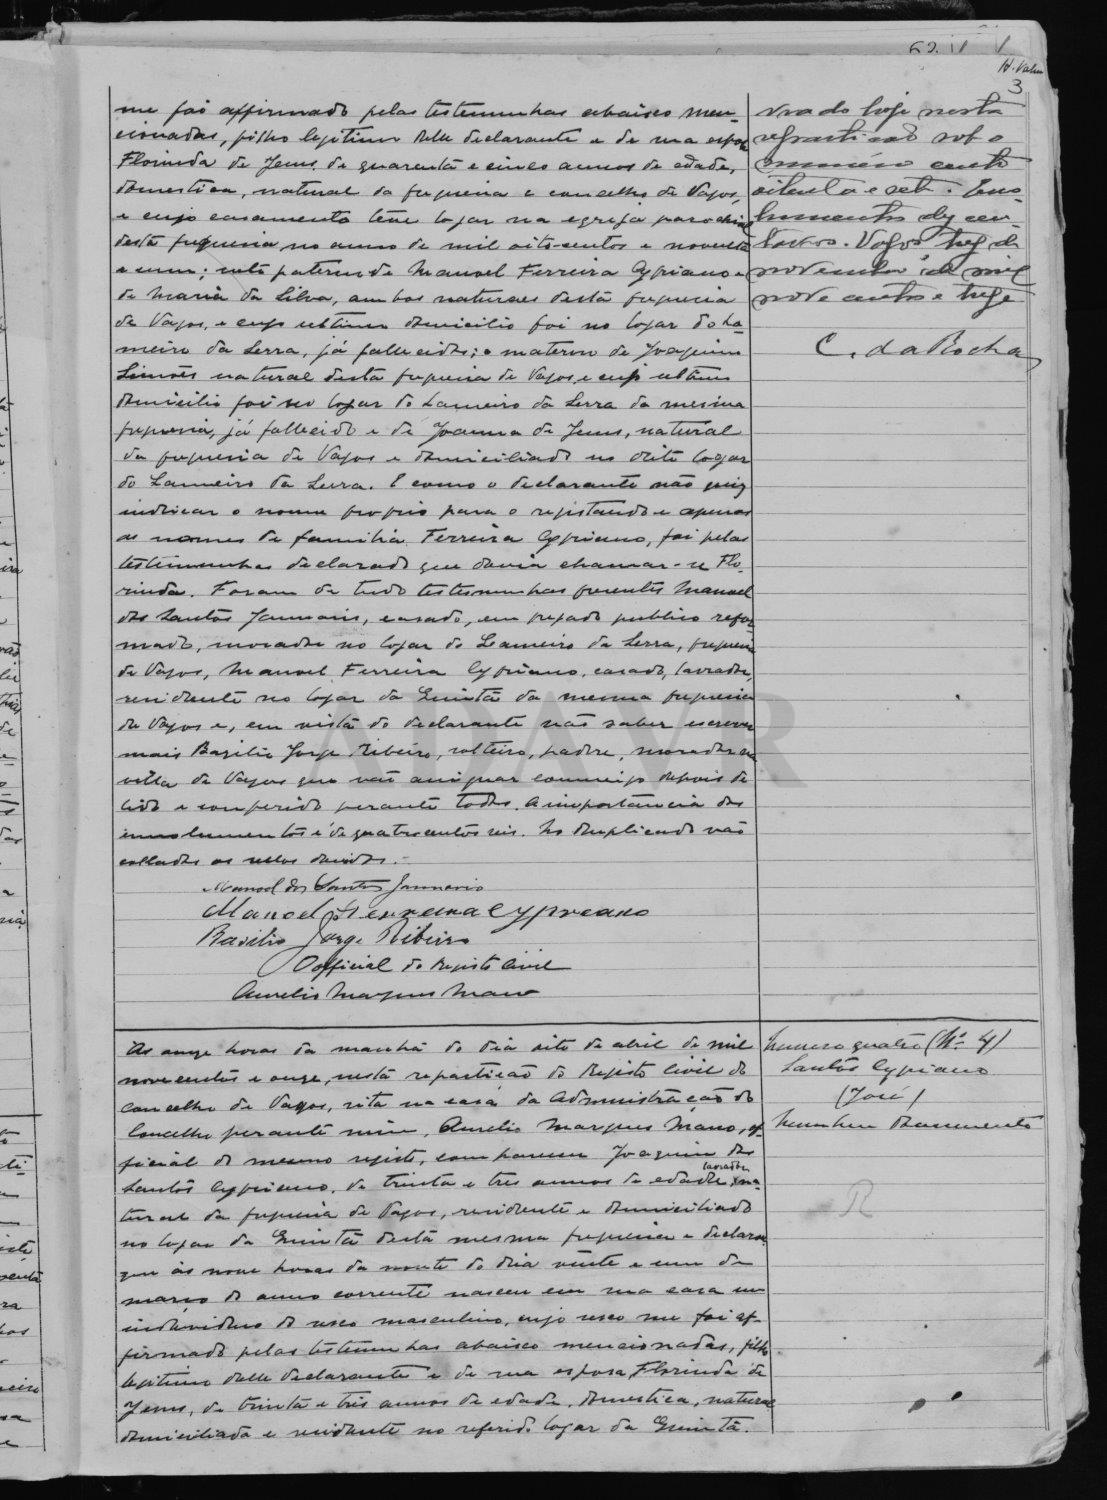 3
me foi affirmado pelas testemunhas abaixo men-
cionadas, filho legitimo delle declarante e de sua esposa
Florinda de Jesus, de quarenta e cinco annos de edade,
domestica, natural da freguesia e concelho de Vagos,
e cujo casamento teve logar na egreja parochial
desta freguesia, no anno de mil oito-centos e noventa
e um; neto paterno de Manuel Ferreira Cypriano e
de Maria da Silva, ambos naturaes desta freguesia
de Vagos, e cujo ultimo domicilio foi no logar do La-
meiro da Serra, já fallecidos; e materno de Joaquim
Simões natural desta freguesia de Vagos, e cujo ultimo
domicilio foi no logar do Lameiro da Serra da mesma
freguesia, já fallecido e de Joanna de Jesus, natural
da freguesia de Vagos e domiciliada no dito logar
do Lameiro da Serra. E como o declarante não quiz
indicar o nome proprio para o registando e apenas
os nomes de familia Ferreira Cypriano, foi pelas
testemunhas declarado que devia chamar-se Flo-
rinda. Foram de tudo testemunhas presentes Manoel
dos Santos Januario, casado, empregado publico refor-
mado, morador no logar do Lameiro da Serra, freguesia
de Vagos, Manoel Ferreira Cypriano, casado, lavrador,
residente no logar da Quintã da mesma freguesia
de Vagos e, em vista do declarante não saber escrever
mais Basilio Jorge Ribeiro, solteiro, padre, morador na
villa de Vagos que vão assignar commigo depois de
lido e conferido perante todos. A importancia dos
emolumentos é de quatrocentos reis. No duplicado vão
collados os sellos devidos.-
Manoel dos Santos Januario
Manoel Ferreira Cypreano
Basilio Jorge Ribeiro
O official do Registo Civil
Aurelio Marques Mano
vrado hoje nesta
repartição sob o
numero cento
oitenta e sete. Emo-
lumentos dez cen-
tavos. Vagos, trez de
novembro de mil
nove centos e treze
C. da Rocha
As onze horas da manhã do dia oito de abril de mil
novecentos e onze, nesta repartição do Registo Civil do
Concelho de Vagos, sita na casa da Administração do
Concelho perante mim, Aurelio Marques Mano, of-
ficial do mesmo registo, compareceu Joaquim dos
Santos Cypriano, de trinta e tres annos de edade, lavrador, na-
tural da freguesia de Vagos, residente e domiciliado
no logar da Quintã desta mesma freguesia e declarou
que ás nove horas da noute do dia vinte e um de
março do anno corrente nasceu em sua casa um
individuo do sexo masculino, cujo sexo me foi af-
firmado pelas testemunhas abaixo mencionadas, filho
legitimo delle declarante e de sua esposa, Florinda de
Jesus, de trinta e tres annos de edade, domestica, natural
domiciliada e residente no referido logar da Quintã.
Numero quatro (Nº 4)
Santos Cypriano
(José)
Nenhum Documento
R